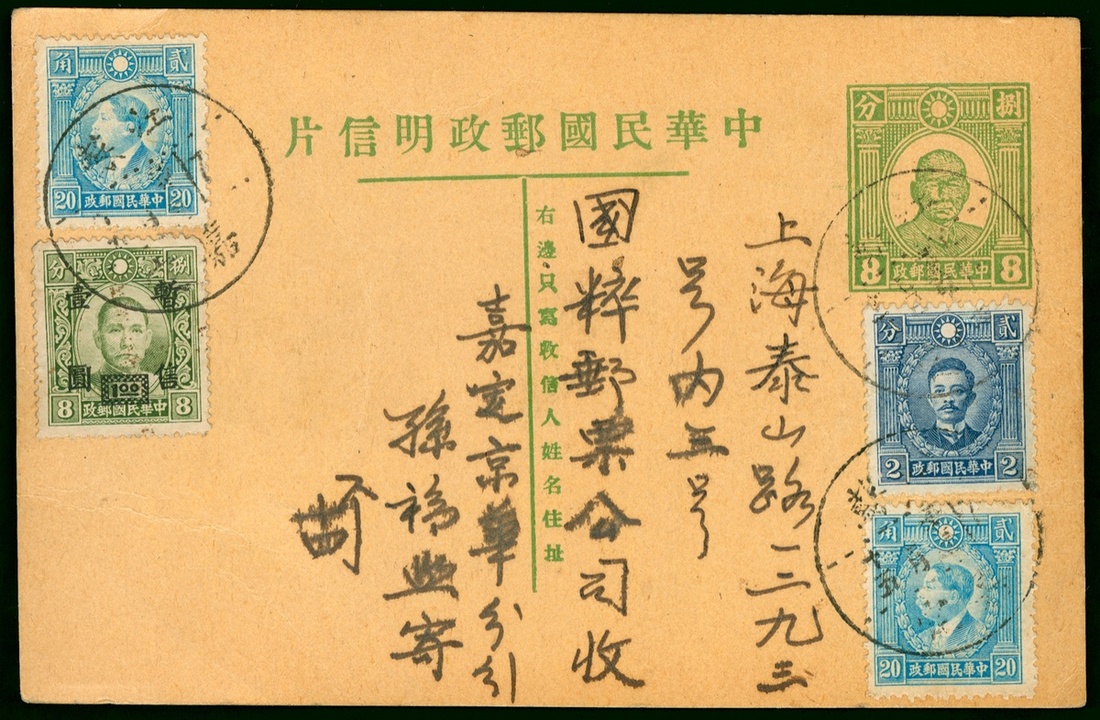 中華民國郵政明信片
右邊只寫收信人姓名住址
上海泰山路二三九
号内五号
國粹郵票公司收
嘉定京華分
孫福熙寄
捌分
8 中華民國郵政 8
貳分
2 中華民國郵政 2
貳角
20 中華民國郵政 20
貳角
20 中華民國郵政 20
捌分
暫售
壹圓
1.00
8 中華民國郵政 8